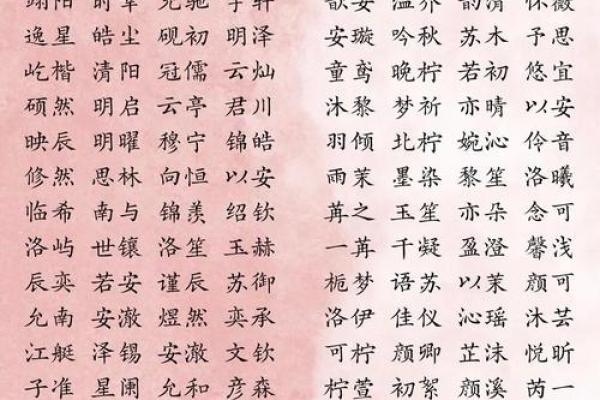 安璇 吟秋 苏木 予思
逸星 皓尘 砚初 明泽
屹楷 清阳 冠儒 云灿 童鸢 晚柠 若初 悠宜
硕然 明启 云亭 君川 沐黎 梦祈 亦晴 以安
映辰 明曜 穆宁 锦皓 羽倾 北柠 婉沁 伶音
修然 思林 向恒 以安 雨茉 墨染 黎笙 洛曦
临希 南与 锦羡 绍钦 苒之 玉笙 亦朵 念可
洛屿 世镶 洛笙 玉赫 一苒 千凝 盈澄 馨浅
辰奕 若安 谨辰 苏御 栀梦 语苏 以茉 颜可
允南 安澈 煜然 奕承 洛伊 佳仪 沁瑶 沐芸
江艇 泽锡 安澈 文钦 可柠 颜卿 芷沫 悦昕
子准 星阑 允和 彦森 柠萱 初絮 颜溪 芮一